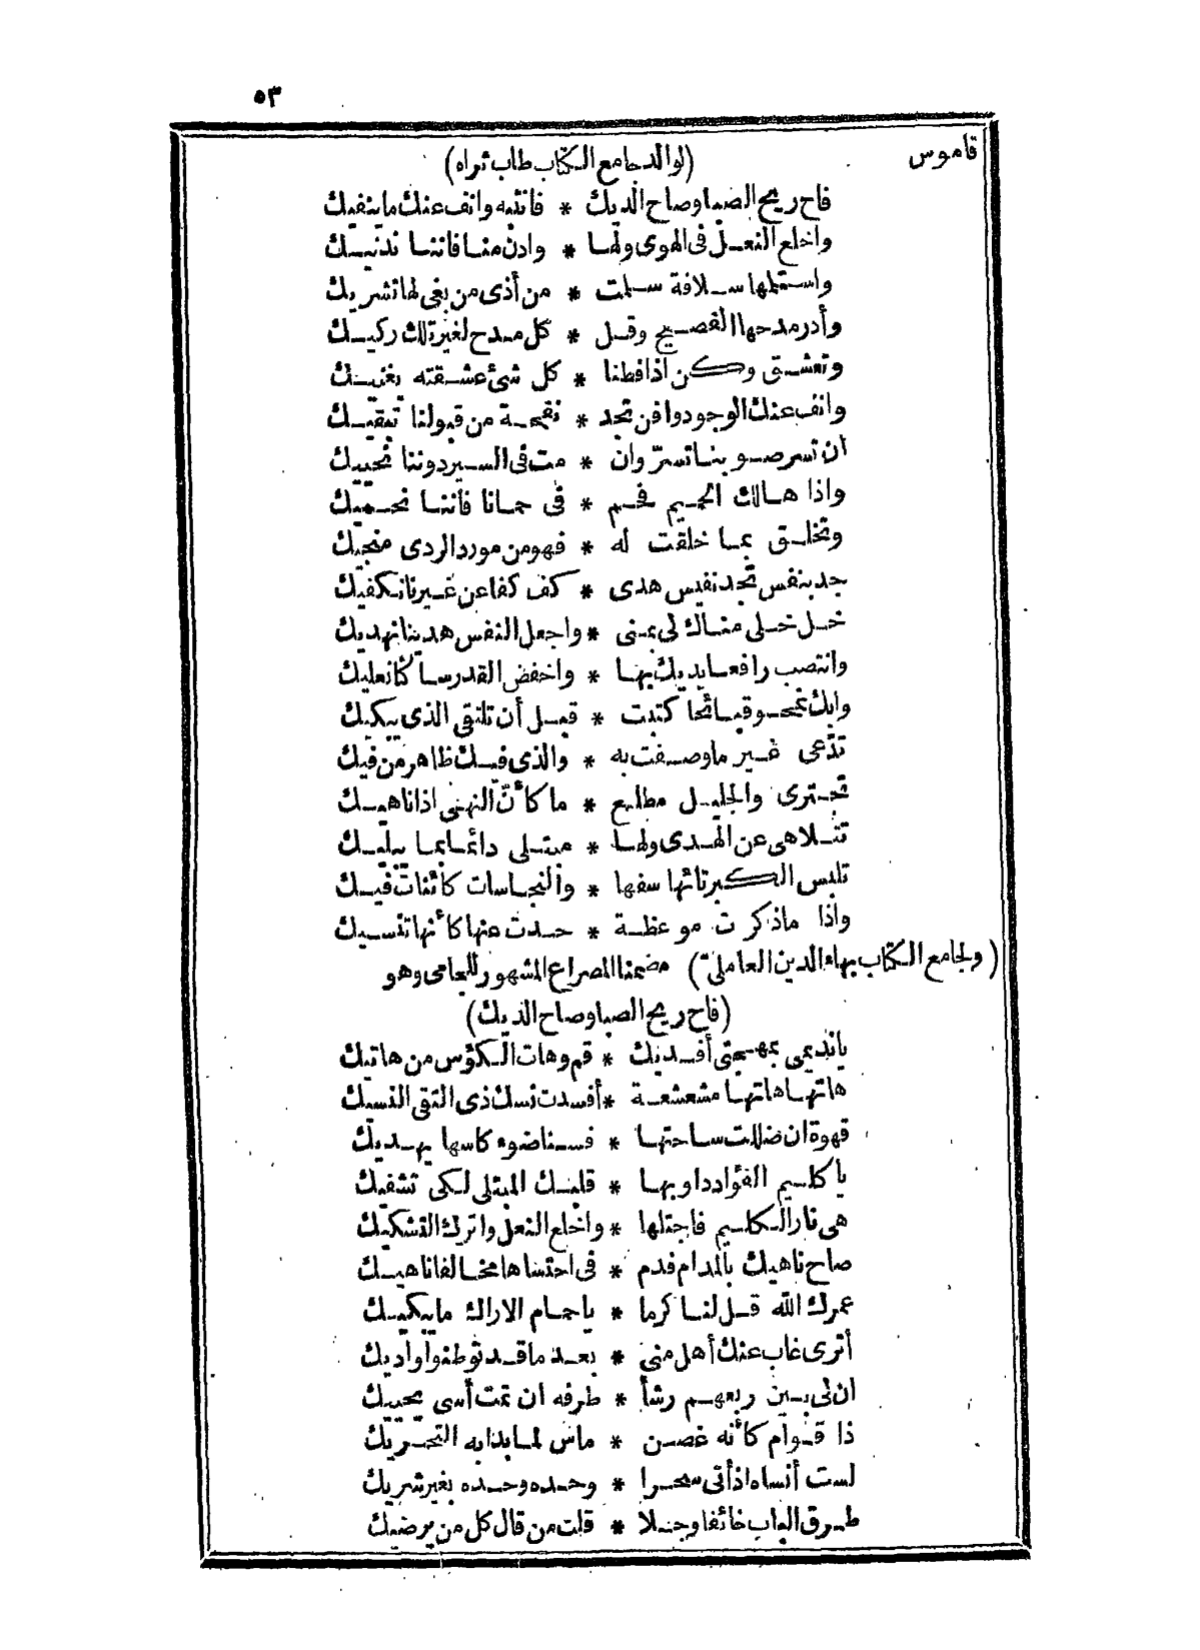 ٥٣
قاموس
(لوالد جامع الكتاب طاب ثراه)
فاح ريح الصبا وصاح الديك * فانتبه وانف عنك ما ينفيك
واخلع النعل فى الهوى ولها * وادن منا فاننا ندنيك
واستملها سلافة سلمت * من أذى من بغى لها تشريك
وأدر مدحها الفصيح وقل * كل مدح لغير تلك ركيك
وتعشق وكن اذا فطنا * كل شئ عشقته يغنيك
وانف عنك الوجود وافن تجد * نفحة من قبولنا تبقيك
ان تسر صوبنا تسر وان * مت فى السير دوننا نحييك
واذا هالك الجحيم فحم * فى حمانا فاننا نحميك
وتخلق بما خلقت له * فهو من مورد الردى منجيك
جد بنفس تجد نفيس هدى * كف كفا عن غيرنا نكفيك
خل خلى مناك لى بمنى * واجعل النفس هدينا نهديك
وانتصب رافعا يديك بها * واخفض القدر سا كا نعليك
وابك تمحو قبائحا كتبت * قبل أن تلتقى الذى يبكيك
تدّعى غير ما وصفت به * والذى فيك ظاهر من فيك
تجترى والجليل مطلع * ما كأنّ النهى اذا ناهيك
تتلاهى عن الهدى ولها * مبتلى دائما بما يبليك
تلبس الكبر تائها سفها * والنجاسات كائنات فيك
واذا ما ذكرت موعظة * حدت عنها كأنها تنسيك
(ولجامع الكتاب بهاء الدين العاملىّ) مضمنا المصراع المشهور للجامى وهو
(فاح ريح الصبا وصاح الديك)
يا نديمى بمهجتى أفديك * قم وهات الكؤس من هاتيك
هاتها هاتها مشعشعة * أفسدت نسك ذى التقى النسيك
قهوة ان ضللت ساحتها * فسنا ضوء كاسها يهديك
يا كليم الفؤاد داو بها * قلبك المبتلى لكى تشفيك
هى نار الكليم فاجتلها * واخلع النعل واترك التشكيك
صاح ناهيك بالمدام فدم * فى احتساها مخالفا ناهيك
عمرك الله قل لنا كرما * يا حمام الاراك ما يبكيك
أترى غاب عنك أهل منى * بعد ما قد توطنوا واديك
ان لى بين ربعهم رشأ * طرفه ان تمت أسى يحييك
ذا قوام كأنه غصن * ماس لما بدا به التحريك
لست أنساه اذ أتى سحرا * وحده وحده بغير شريك
طرق الباب خائفا وجلا * قلت من قال كل من يرضيك